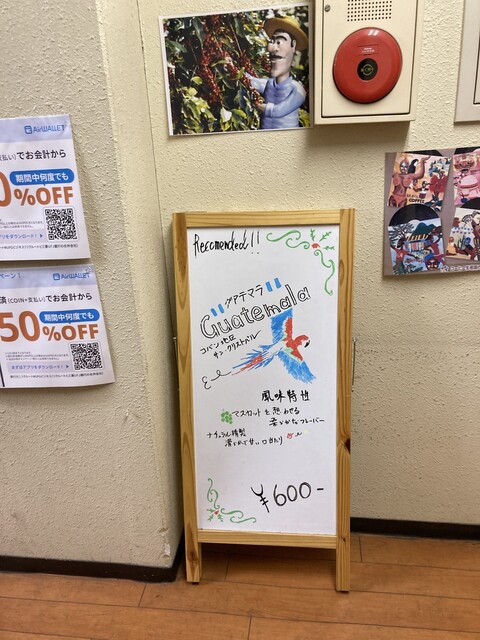 AIRWALLET
支払い)でお会計から
期間中何度でも
0%OFF
AIRWALLET
済(COIN+支払い)でお会計から
期間中何度でも
50%OFF
Recomended!!
グアテマラ
Guatemala
コバン地区
サン・クリストバル
風味特性
マスカットを思わせる
柔らかなフレーバー
ナチュラル精製
滑らかで甘い口当たり
¥600-
COFFEE